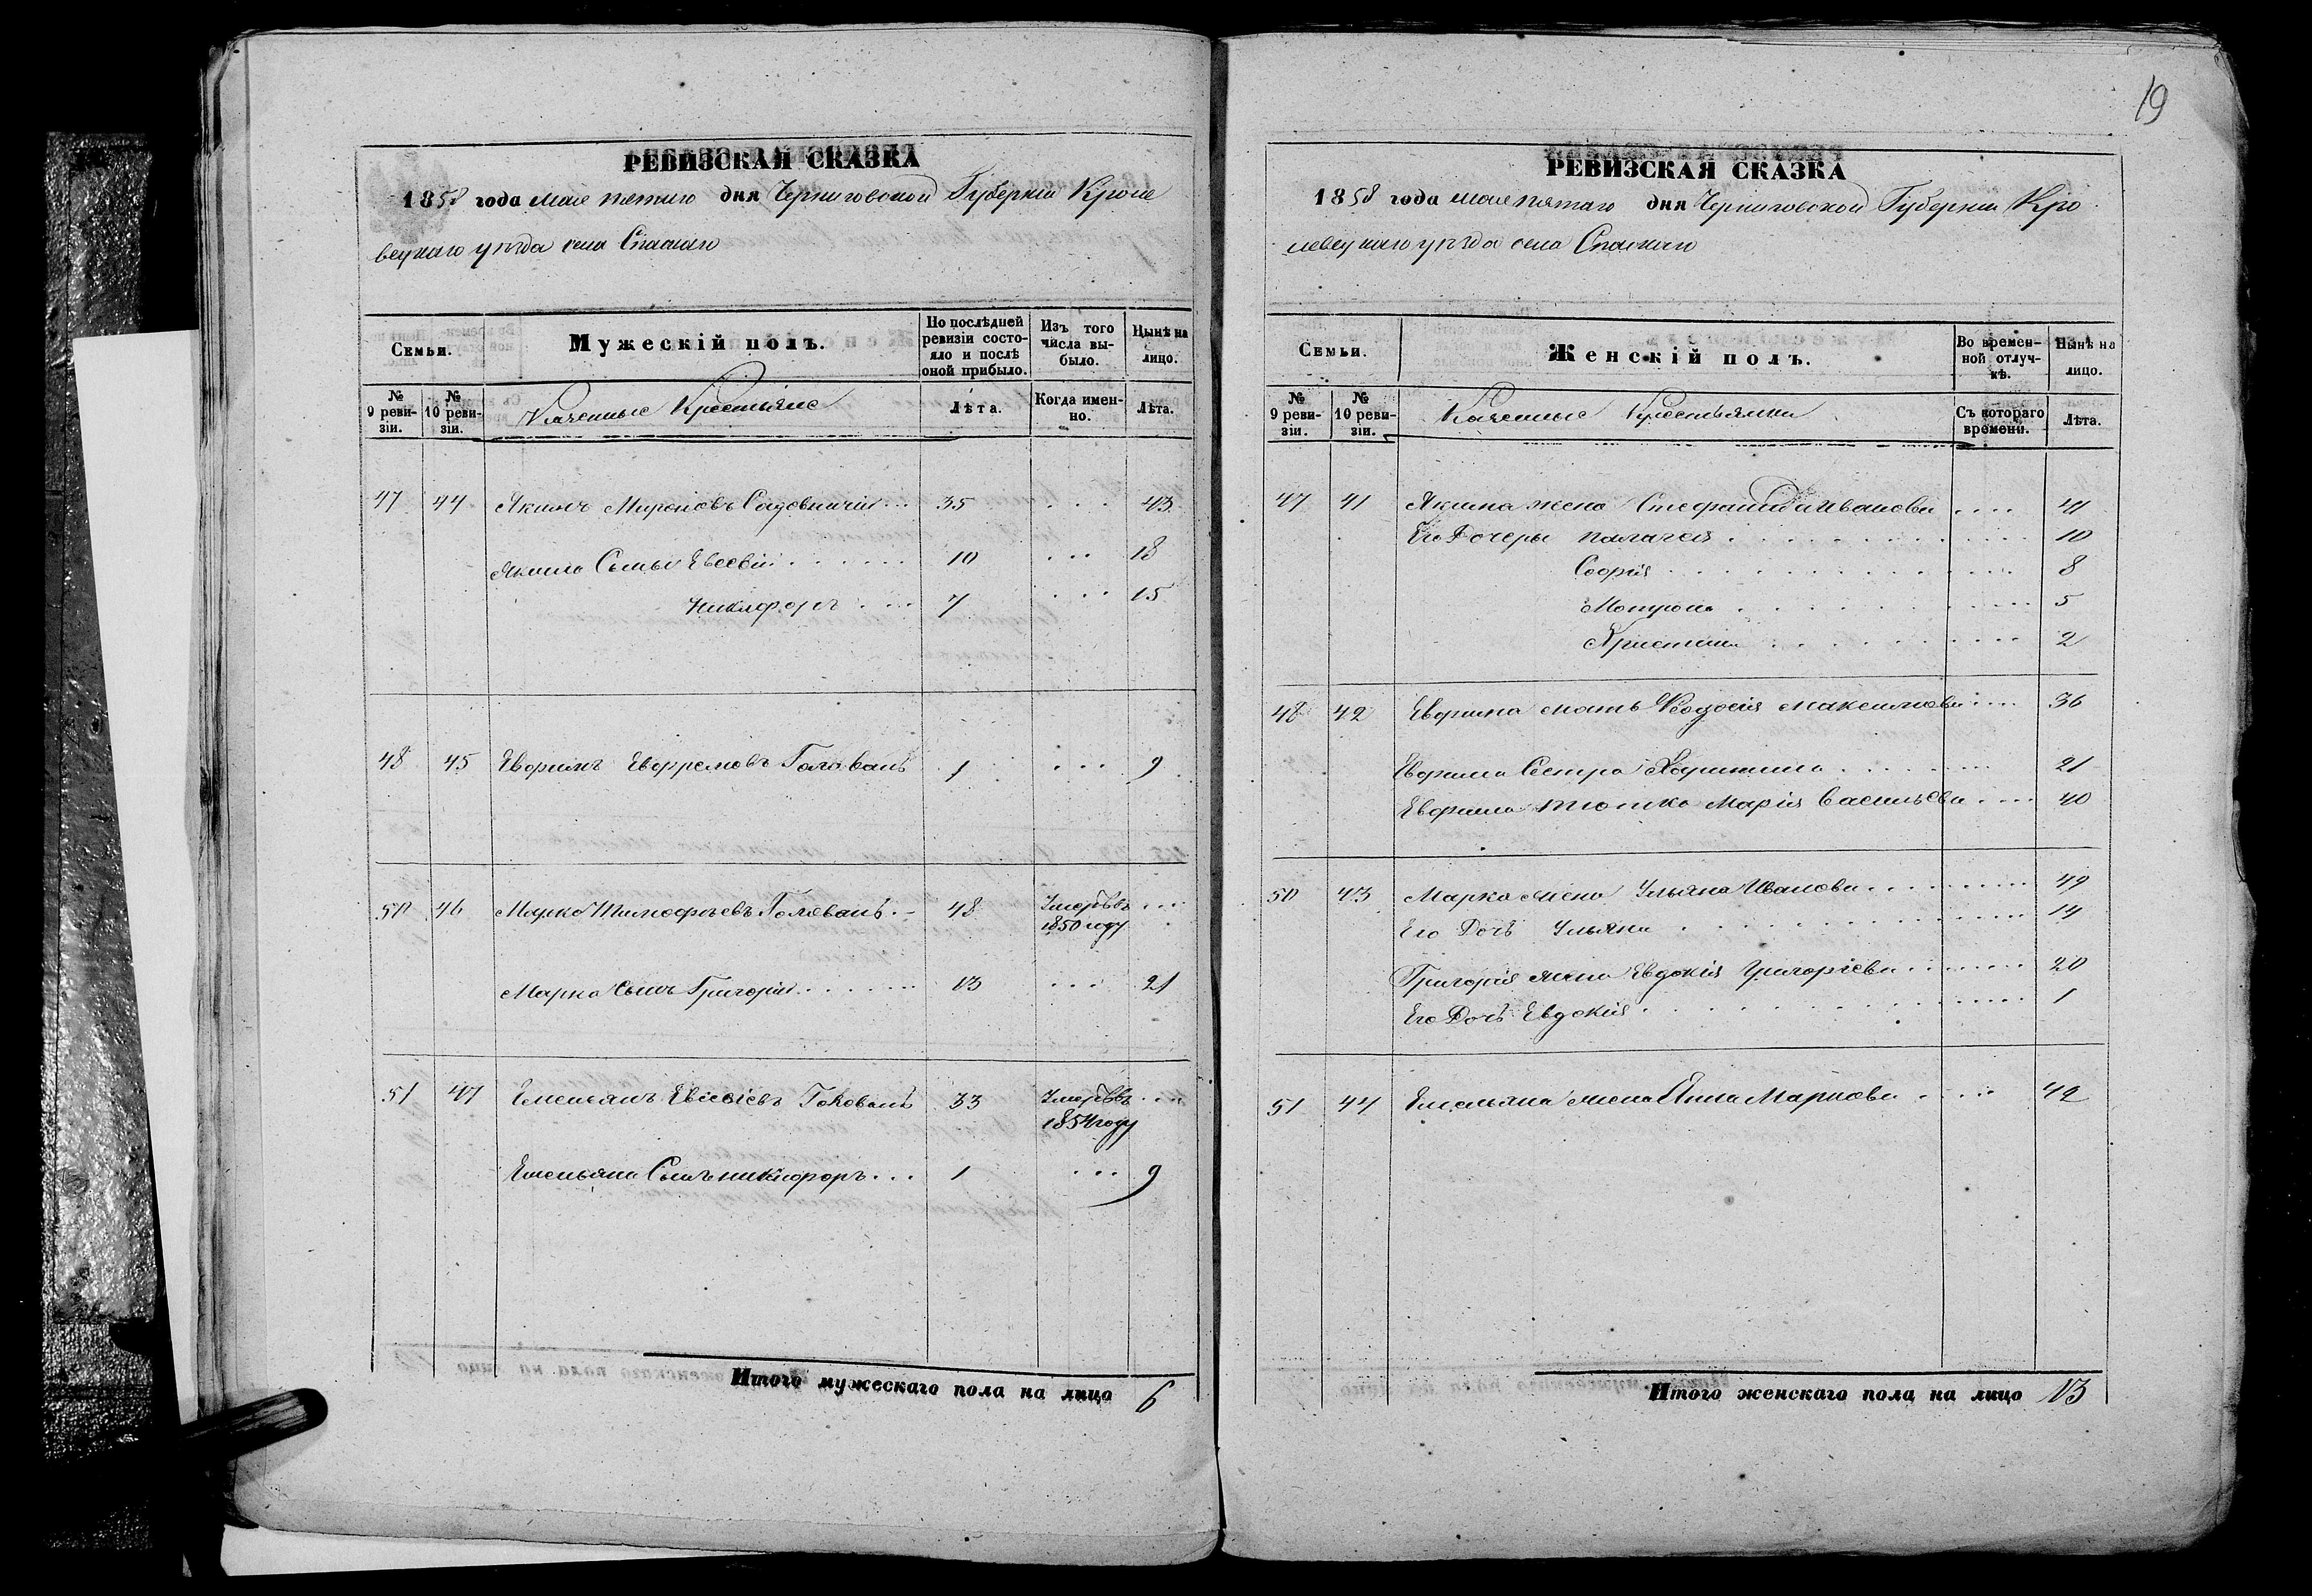 19
РЕВИЗСКАЯ СКАЗКА
1858 года мая пятаго дня Черниговской Губерніи Кроле
вецкаго уѣзда села Спаскаго
Семьи.
Мужескій полъ.
По послѣдней ревизіи состояло и послѣ оной прибыло.
Изъ того числа выбыло.
Нынѣ на лицо.
№ 9 ревизіи.
№ 10 ревизіи.
Казенные Крестьяне
Лѣта.
Когда именно.
Лѣта.
47 44 Якимъ Мироновъ Садовничій ... 35 ... 43
Якима Сыны Евсевій ...... 10 ... 18
Никифоръ .... 7 ... 15
48 45 Евфимъ Евфремовъ Голованъ 1 ... 9
50 46 Марко Тимофѣевъ Голованъ .. 48 Умеръ въ ...
1850 году
Марка Сынъ Григорій ....... 13 ... 21
51 47 Емельянъ Евсевіевъ Голованъ 33 Умеръ въ ...
1854 году
Емельяна Сынъ Никифоръ ... 1 ... 9
Итого мужескаго пола на лицо 6
РЕВИЗСКАЯ СКАЗКА
1858 года мая пятаго дня Черниговской Губерніи Кро
левецкаго уѣзда села Спаскаго
Семьи.
Женскій полъ.
Во временной отлучкѣ.
Нынѣ на лицо.
№ 9 ревизіи.
№ 10 ревизіи.
Казенные Крестьянки
Съ котораго времени.
Лѣта.
47 41 Якима жена Стефанида Иванова .... 41
Его Дочеры Палагея ........... 10
Софія ........... 8
Мотрона ......... 5
Христина ........ 2
48 42 Евфима мать Феодосія Максимова .... 36
Евфима Сестра Харитина ....... 21
Евфима тютка Марія Васильева .... 40
50 43 Марка жена Ульяна Иванова ........ 49
Его Дочь Ульяна ............ 14
Григорія жена Евдокія Григоріева ....... 20
Его Дочь Евдокія ............ 1
51 44 Емельяна жена Анна Маркова .... 42
Итого женскаго пола на лицо 13